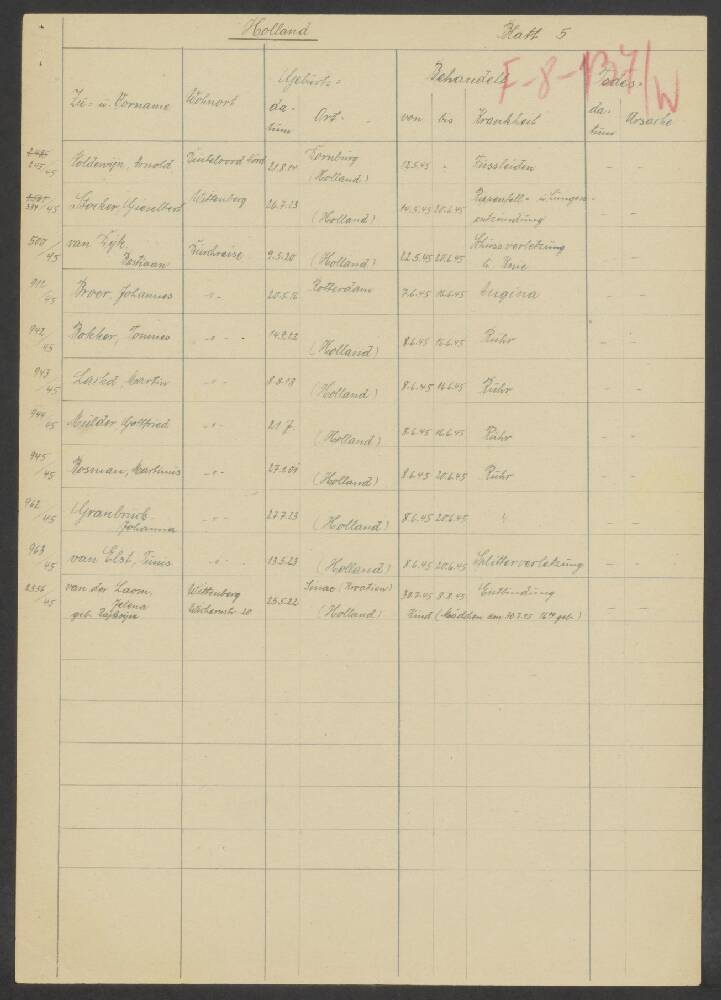 Holland Blatt 5
F-8-137/W
Geburts- Behandelt Todes-
Zu- u. Vorname Wohnort da-tum Ort von bis Krankheit da-tum Ursache
245/45 Arnold 21.8.14 (Holland) 12.5.45 - Fussleiden - -
/45 Stecker, Wittenberg 26.7.23 (Holland) 14.5.45 20.6.45 Rippenfell- u. Lungen-entzündung - -
500/45 van Bastiaan Durchreise 9.5.20 (Holland) 22.5.45 20.6.45 Schussverletzung li. Knie - -
911/45 Broer, Johannes -"- 20.5.16 Rotterdam 7.6.45 16.6.45 Angina - -
942/45 Bakker, -"- (Holland) 8.6.45 16.6.45 Ruhr - -
943/45 Martin -"- 8.8.13 (Holland) 8.6.45 16.6.45 Ruhr - -
944/45 Mulder, Gottfried -"- (Holland) 8.6.45 16.6.45 Ruhr - -
945/45 Bosman, Martinus -"- (Holland) 8.6.45 20.6.45 Ruhr - -
962/45 Johanna -"- 27.7.23 (Holland) 8.6.45 20.6.45 " - -
963/45 van Elst, Tinus -"- 13.5.23 (Holland) 8.6.45 20.6.45 Splitterverletzung - -
2336/45 van der Laom, Wittenberg Sinac (Kroatien) 30.7.45 8.8.45 Entbindung - -
Jelena 20 23.5.22 (Holland) Kind (Mädchen am 30.7.45 geb.)
geb.